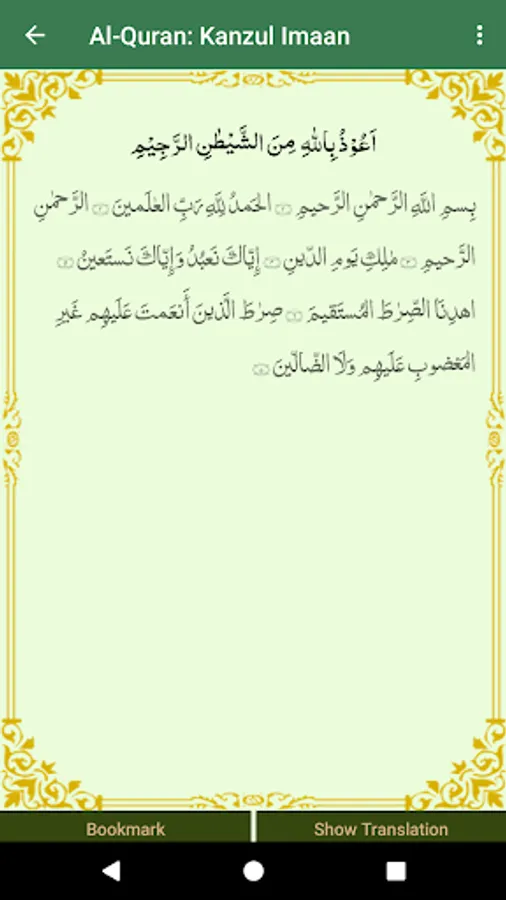 Al-Quran: Kanzul Imaan
اَعُوْذُ بِاللهِ مِنَ الشَّيْطٰنِ الرَّجِيْمِ
بِسمِ اللَّهِ الرَّحمٰنِ الرَّحيمِ الحَمدُ لِلَّهِ رَبِّ العٰلَمينَ الرَّحمٰنِ
الرَّحيمِ مٰلِكِ يَومِ الدّينِ إِيّاكَ نَعبُدُ وَإِيّاكَ نَستَعينُ
اهدِنَا الصِّرٰطَ المُستَقيمَ صِرٰطَ الَّذينَ أَنعَمتَ عَلَيهِم غَيرِ
المَغضوبِ عَلَيهِم وَلَا الضّالّينَ
Bookmark
Show Translation